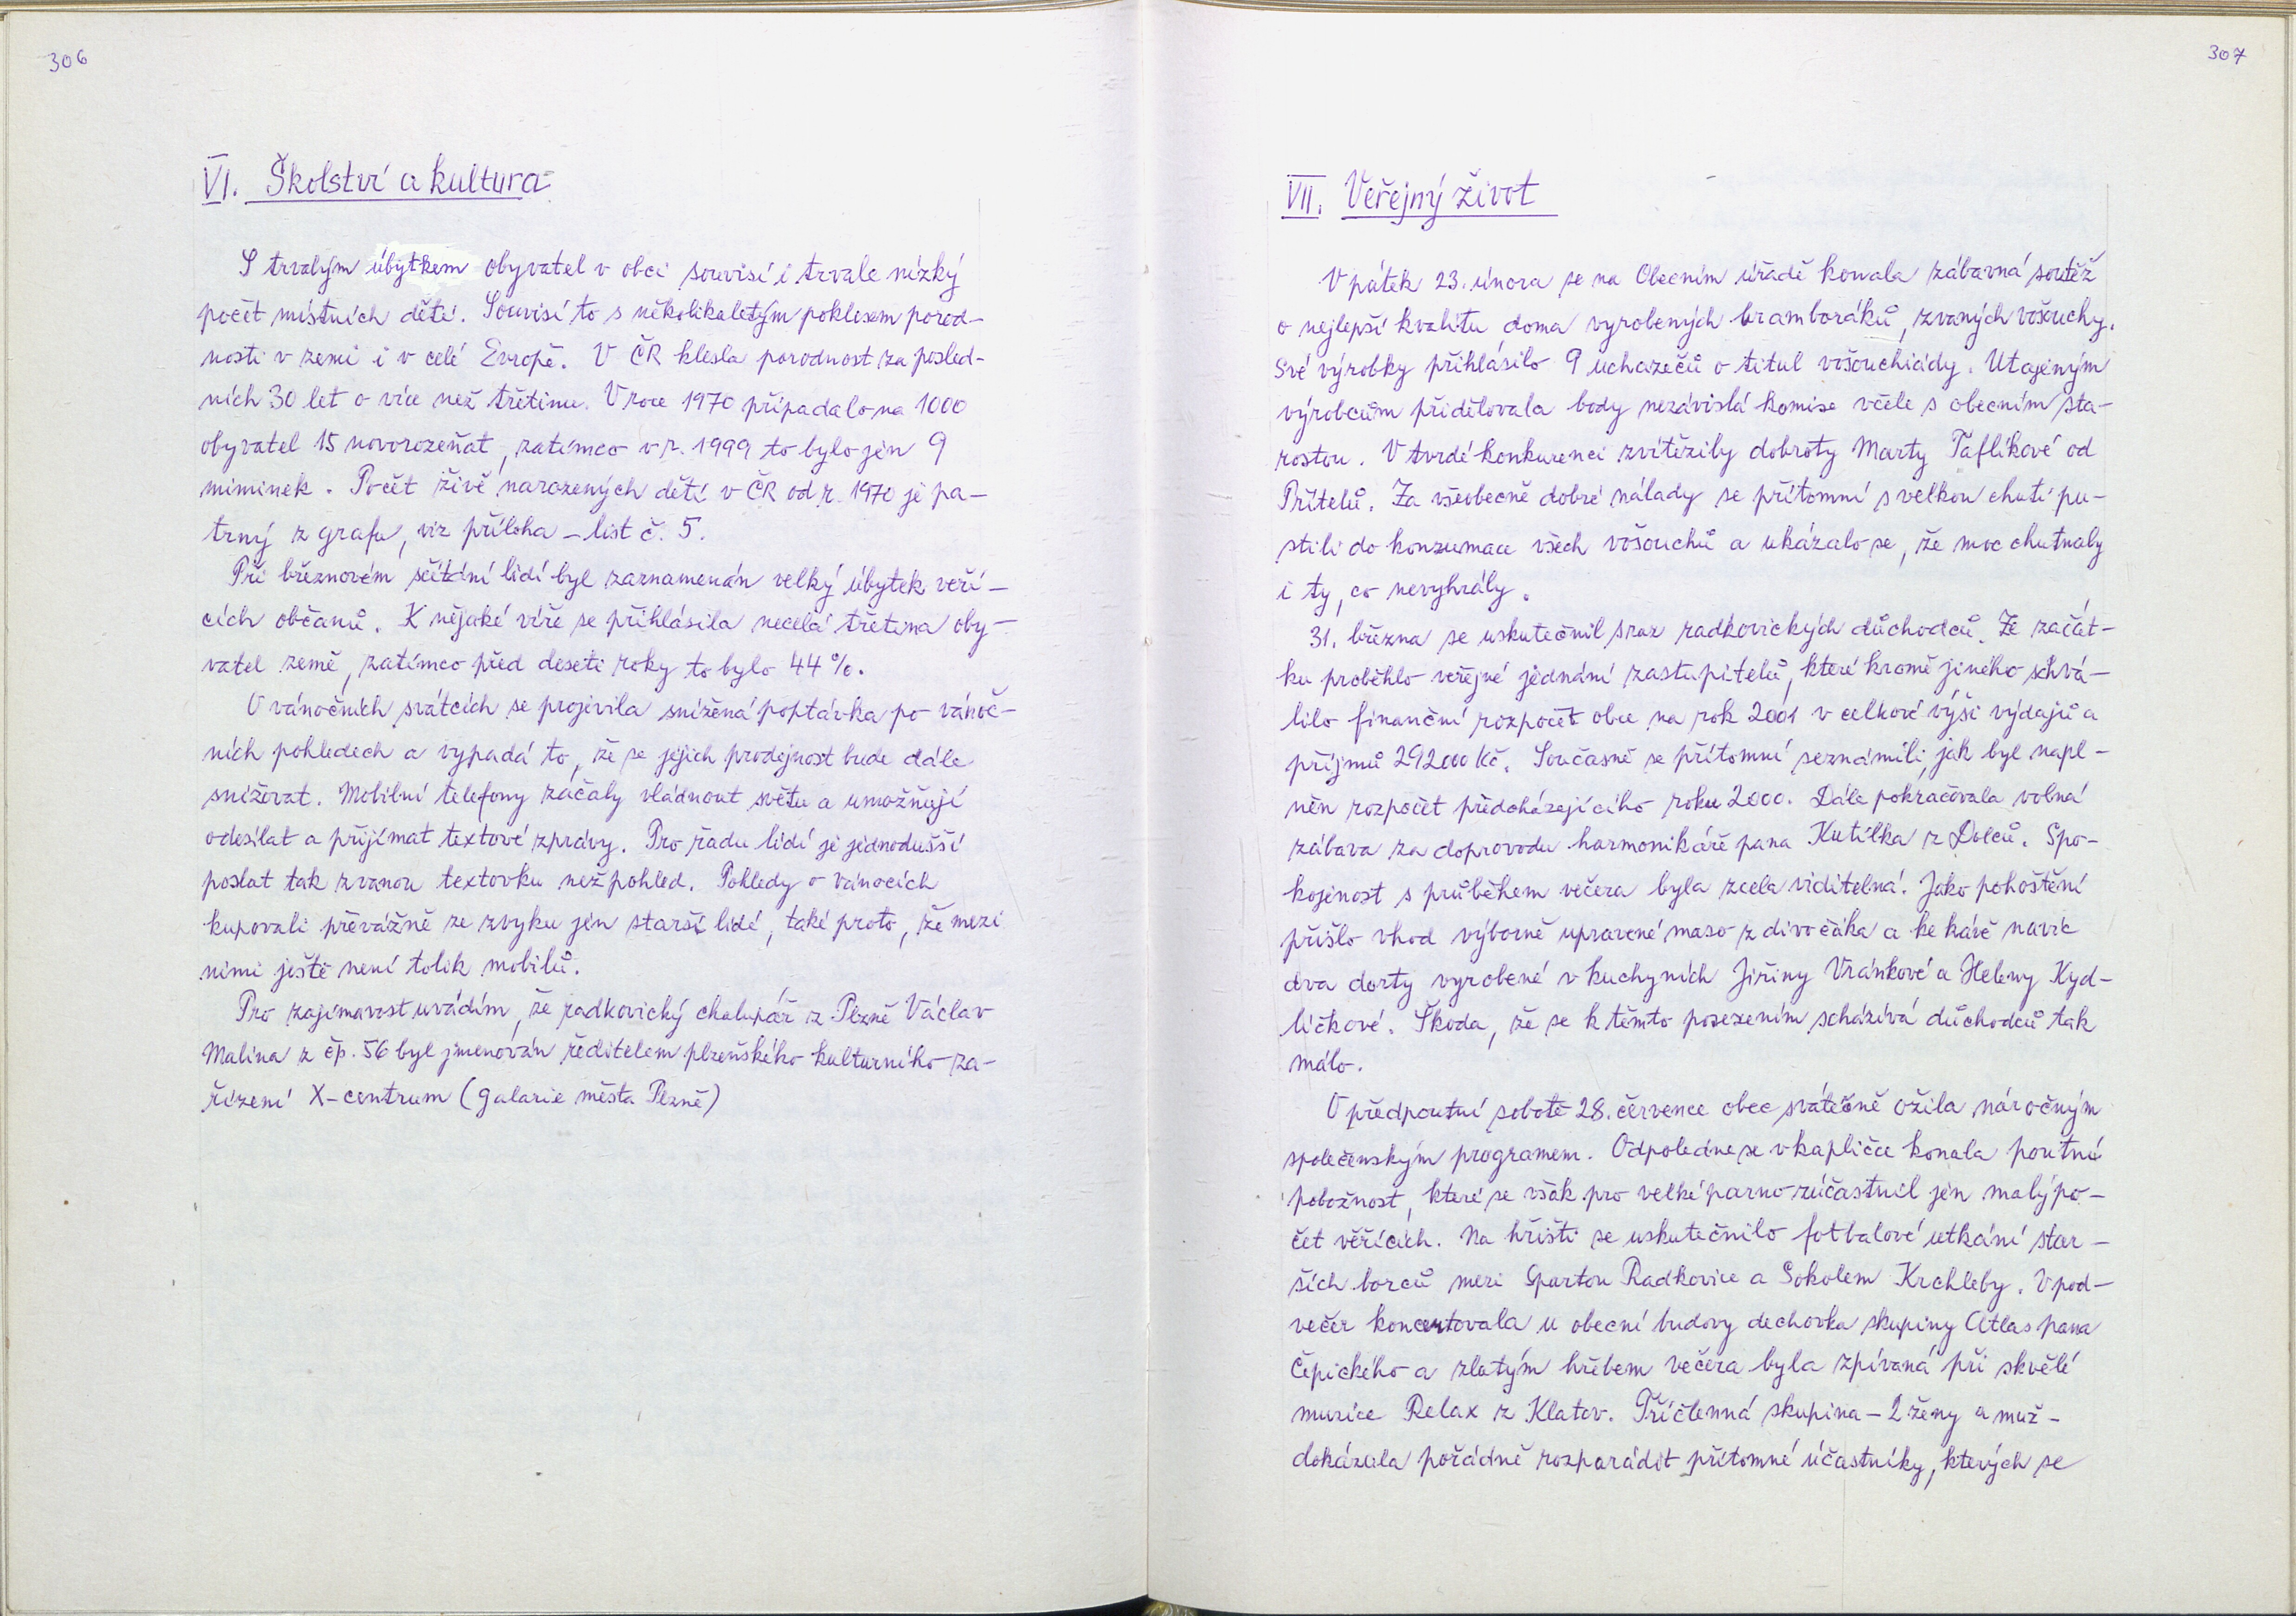 306
VI. Školství a kultura
S trvalým úbytkem obyvatel v obci souvisí i trvale nízký
počet místních dětí. Souvisí to s několikaletým poklesem porod-
nosti v zemi i v celé Evropě. V ČR klesla porodnost za posled-
ních 30 let o více než třetinu. V roce 1970 připadalo na 1000
obyvatel 15 novorozeňat, zatímco v r. 1999 to bylo jen 9
miminek. Počet živě narozených dětí v ČR od r. 1970 je pa-
trný z grafu, viz příloha - list č. 5.
Při březnovém sčítání lidí byl zaznamenán velký úbytek veří-
cích občanů. K nějaké víře se přihlásila necelá třetina oby-
vatel země, zatímco před deseti roky to bylo 44%.
O vánočních svátcích se projevila snížená poptávka po vánoč-
ních pohledech a vypadá to, že se jejich prodejnost bude dále
snižovat. Mobilní telefony začaly vládnout světu a umožňují
odesílat a přijímat textové zprávy. Pro řadu lidí je jednodušší
poslat tak zvanou textovku než pohled. Pohledy o vánocích
kupovali převážně ze zvyku jen starší lidé, také proto, že mezi
nimi ještě není tolik mobilů.
Pro zajímavost uvádím, že radkovický chalupář z Plzně Václav
Malina z čp. 56 byl jmenován ředitelem plzeňského kulturního za-
řízení X-centrum (galarie města Plzně)
307
VII. Veřejný život
V pátek 23. února se na Obecním úřadě konala zábavná soutěž
o nejlepší kvalitu doma vyrobených bramboráků, zvaných vošouchy.
Své výrobky přihlásilo 9 uchazečů o titul vošouchiády. Utajeným
výrobcům přidělovala body nezávislá komise včele s obecním sta-
rostou. V tvrdé konkurenci zvítězily dobroty Marty Taflíkové od
Přítelů. Za všeobecně dobré nálady se přítomní s velkou chutí pu-
stili do konzumace všech vošouchů a ukázalo se, že moc chutnaly
i ty, co nevyhrály.
31. března se uskutečnil sraz radkovických důchodců. Ze začát-
ku proběhlo veřejné jednání zastupitelů, které kromě jiného schvá-
lilo finanční rozpočet obce na rok 2001 v celkové výši výdajů a
příjmů 292000 Kč. Současně se přítomní seznámili, jak byl napl-
něn rozpočet předcházejícího roku 2000. Dále pokračovala volná
zábava za doprovodu harmonikáře pana Kutílka z Dolců. Spo-
kojenost s průběhem večera byla zcela viditelná. Jako pohoštění
přišlo vhod výborně upravené maso z divočáka a ke kávě navíc
dva dorty vyrobené v kuchyních Jiřiny Vránkové a Heleny Kyd-
líčkové. Škoda, že se k těmto posezením scházívá důchodců tak
málo.
O předpoutní sobotě 28. července obec svátečně ožila náročným
společenským programem. Odpoledne se v kapličce konala poutní
pobožnost, které se však pro velké parno zúčastnil jen malý po-
čet věřících. Na hřišti se uskutečnilo fotbalové utkání star-
ších borců mezi Spartou Radkovice a Sokolem Krchleby. V pod-
večer koncertovala u obecní budovy dechovka skupiny Atlas pana
Čepického a zlatým hřebem večera byla zpívaná při skvělé
muzice Relax z Klatov. Tříčlenná skupina - 2 ženy a muž -
dokázala pořádně rozparádit přítomné účastníky, kterých se